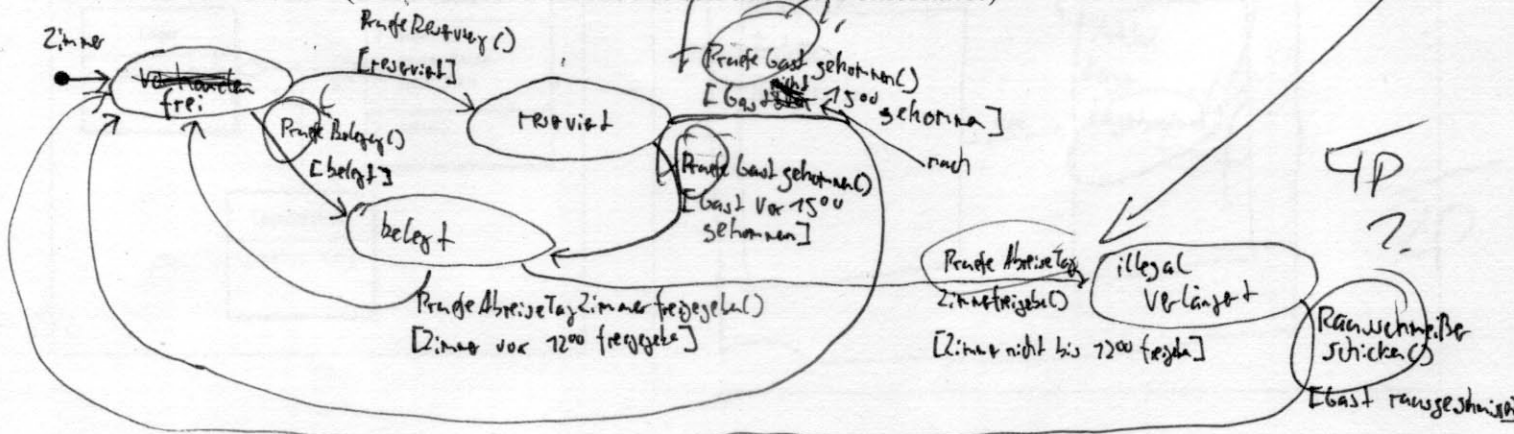 Zimmer
frei
PruefeReservierung()
[reserviert]
reserviert
PruefeBelegung()
[belegt]
belegt
Pruefe Gast gekommen()
[Gast nicht 15⁰⁰
gekommen]
nach
Pruefe Gast gekommen()
[Gast vor 15⁰⁰
gekommen]
PruefeAbreiseTagZimmerfreigegeben()
[Zimmer vor 12⁰⁰ freigegeben]
Pruefe AbreiseTag
Zimmerfreigabe()
[Zimmer nicht bis 12⁰⁰ freigeben]
illegal
verlängert
4P
?
Rausschmeißer
schicken()
[Gast rausgeschmissen